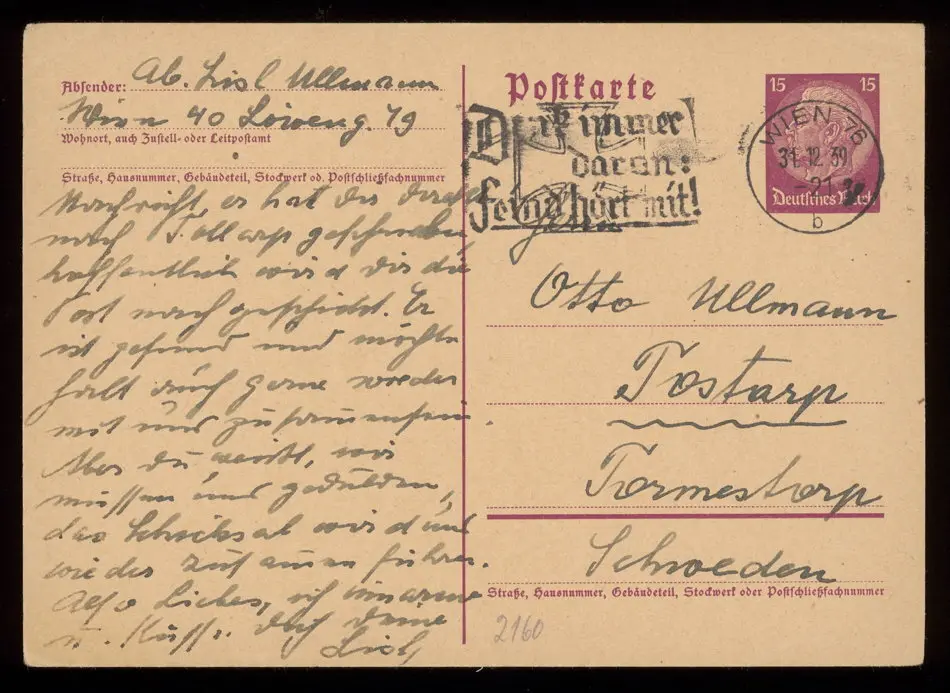 Absender: Ab. Lisl Ullmann
Wien 40 Löweng. 49
Wohnort, auch Zustell- oder Leitpostamt
Straße, Hausnummer, Gebäudeteil, Stockwerk od. Postschließfachnummer
Nachricht, er hat dir direkt
nach Tollarp geschrieben,
hoffentlich wird dir die
Post nach geschickt. Er
ist gesund und möchte
halt auch gerne wieder
mit uns zusammensein
Aber du weißt, wir
müssen uns gedulden,
das Schicksal wird uns
wieder zusammen führen.
Also Liebes, ich umarme
u. küsse dich deine
Lisl
Postkarte
Denk immer
daran:
Feind hört mit!
15 15
Deutsches Reich
WIEN 76
31.12.39
-21
b
Otto Ullmann
Tostarp
Tormestorp
Schweden
Straße, Hausnummer, Gebäudeteil, Stockwerk oder Postschließfachnummer
2160